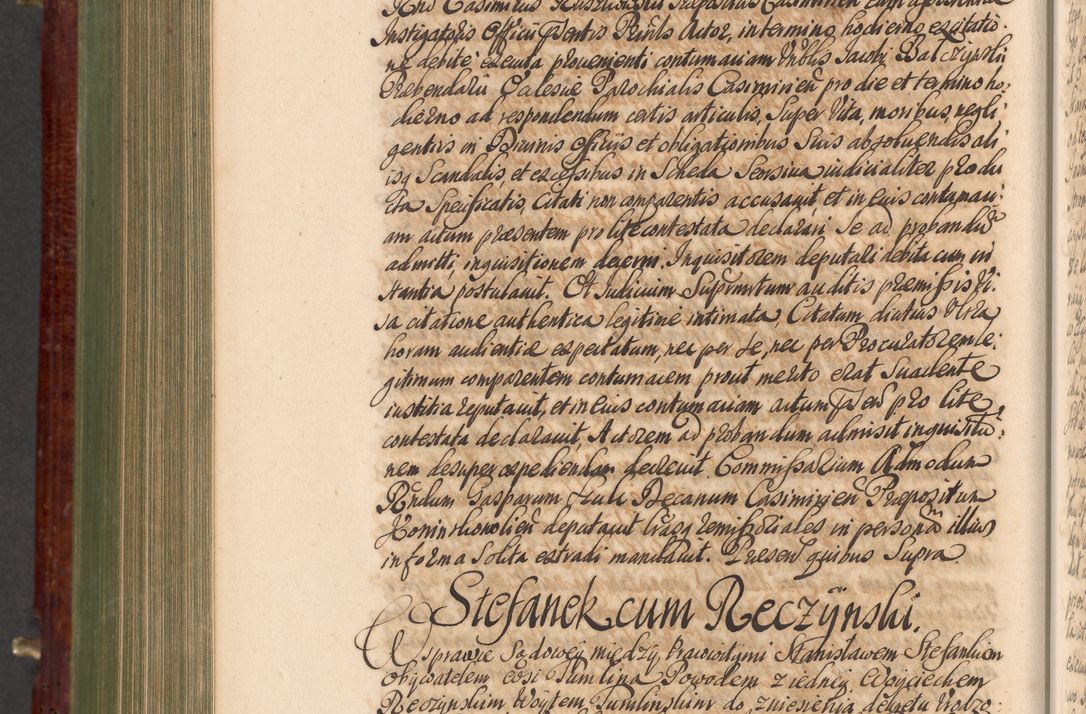 Instigatoris Officii Pntis Rndis Actor, in termino hodierno, ex citatio
ne debite executa proveniénti contumaciam Vrblis Jacobi Balczynski
Præbendarii Ecclesiæ Parochialis Casimirien pro die et termino ho-
dierno ad respondendum certis articulis, Super Vita, moribus, negli-
gentiis in Divinis Officiis et obligationibus Suis absoluendis ali
isq Scandalis, et excessibus in Scheda Seorsiva iudicialiter produ
cta Specificatis, Citati non comparentis accusavit, et in eius contumaci-
am actum præsentem pro lite contestata declarari, Se ad probandū
admitti, inquisitionem decerni, Inquisitorem deputari debita cum in
stantia postulavit. Et Judicium Suprmtum auditis præmissis Vi-
sa citatione authentica legitimè intimata, Citatum diutius Ultra
horam audientiæ expectatum, nec per se, nec per Procuratorem le-
gitimum comparentem contumacem prout merito erat Suadente
iustitia reputavit, et in eius contumaciam actum pñtem pro lite
contestata declaravit, Actorem ad probandum admisit inquisitio-
nem desuper expediendam decrevit. Commissarium Admodum
Rndum Gasparum Hul Decanum Casimirien Præpositum
deputavit lrasq remissoriales in personam illius
in forma Solita extradi mandavit. Præsen quibus Supra.
Stefanek cum Reczÿnski.
W sprawie Sądowey między Pracowitymi Stanisławem Stefankiem
Obywatelem wsi Tumlina Powodem z iedney Woyciechem
Reczynskim Woytem Tumlinskim do zniesienia dekretu Urodzo